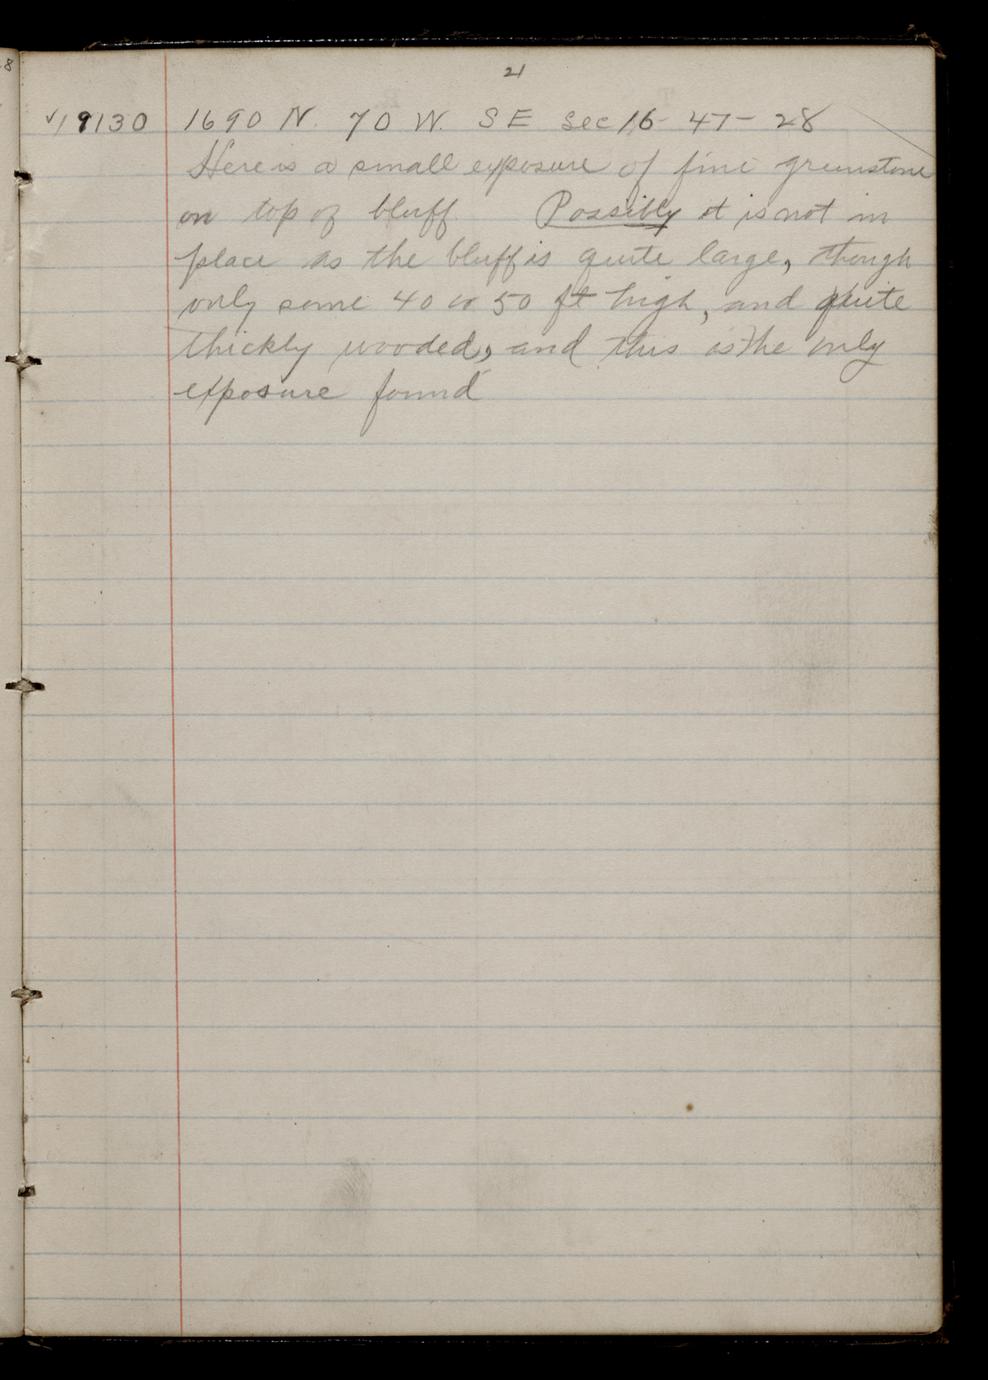 8
21
✓19130 1690 N. 70 W. SE Sec 16- 47- 28
Here is a small exposure of fine greenstone
on top of bluff Possibly it is not in
place as the bluff is quite large, though
only some 40 or 50 ft high, and quite
thickly wooded, and this is the only
exposure found